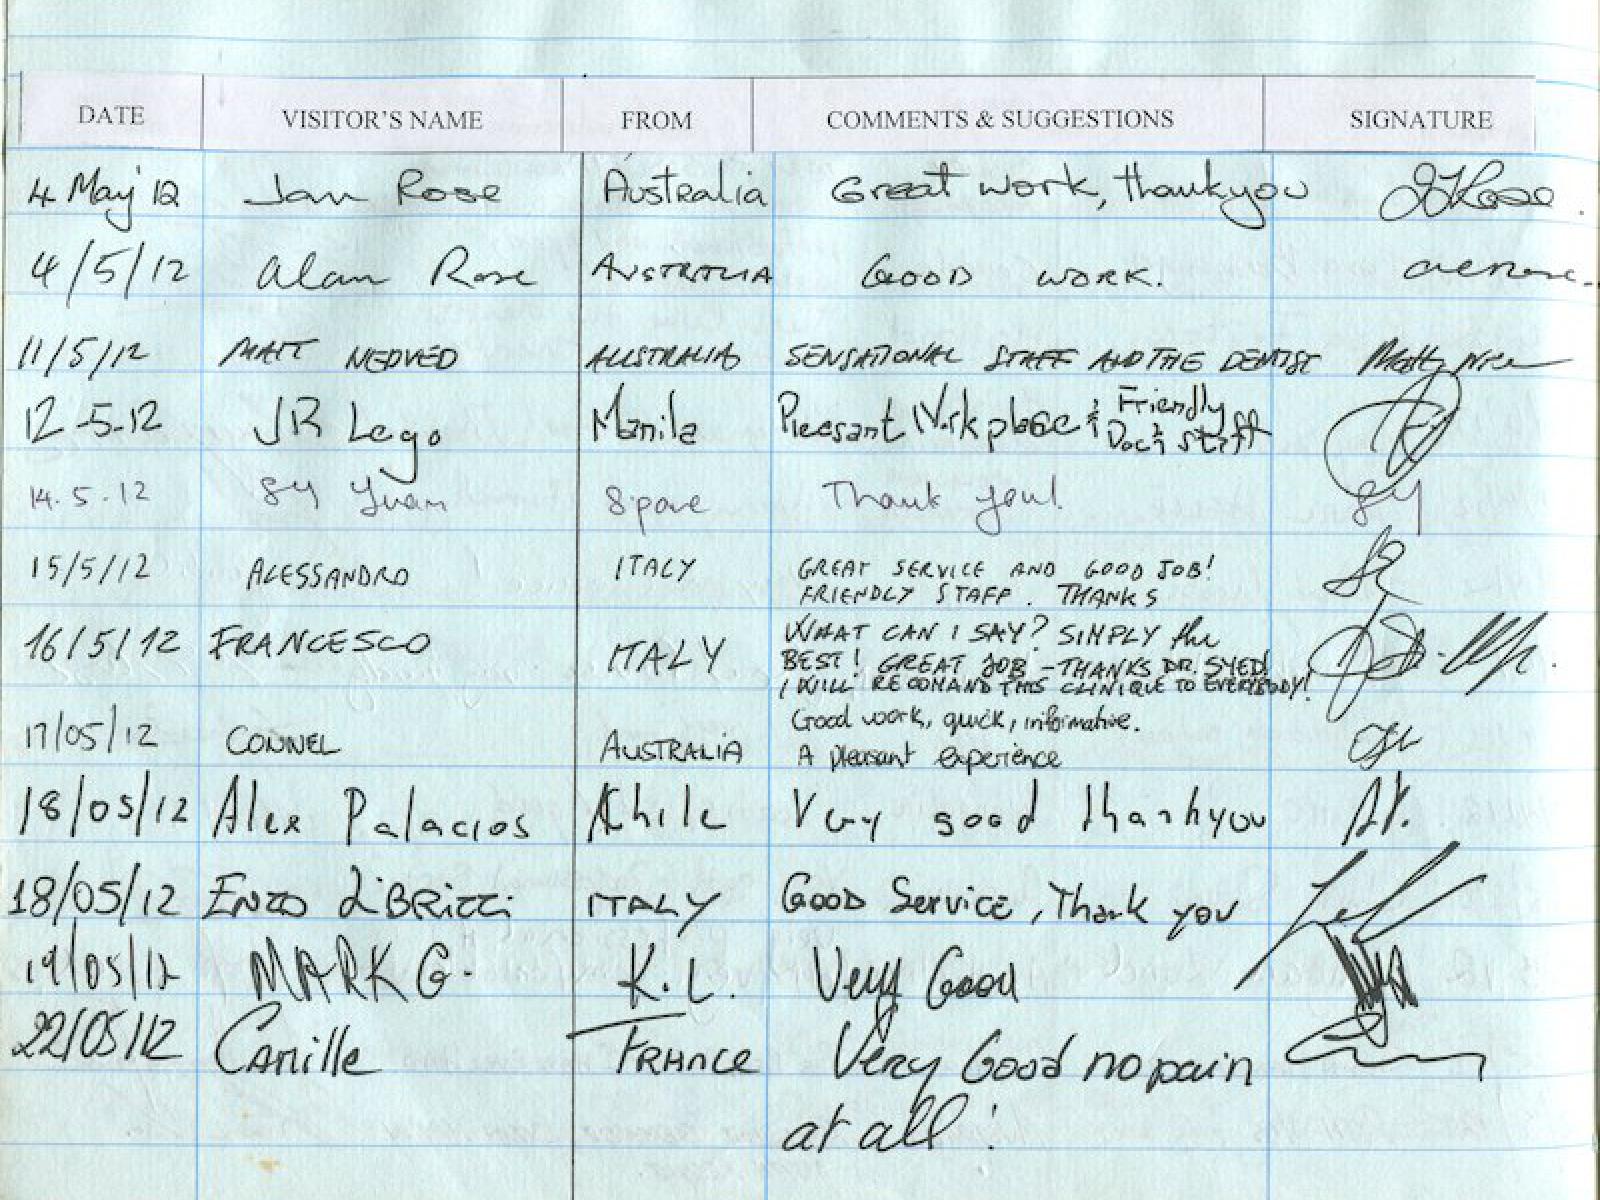 DATE VISITOR'S NAME FROM COMMENTS & SUGGESTIONS SIGNATURE
4 May 12 Jan Rose Australia Great work, thankyou
4/5/12 Alan Rose AUSTRALIA GOOD WORK.
11/5/12 MATT NEDVED AUSTRALIA SENSATIONAL STAFF AND THE DENTIST
12-5-12 JR Lego Manila Pleasant Workplace & Friendly
Doc & staff
14.5.12 SY Yuan S'pore Thank you! SY
15/5/12 ALESSANDRO ITALY GREAT SERVICE AND GOOD JOB!
FRIENDLY STAFF. THANKS
16/5/12 FRANCESCO ITALY WHAT CAN I SAY? SIMPLY the
BEST! GREAT JOB - THANKS DR. SYED!
I WILL RECOMAND THIS CLINIQUE TO EVERYBODY!
17/05/12 CONNEL AUSTRALIA Good work, quick, informative.
A pleasant experience
18/05/12 Alex Palacios Chile Very good thankyou
18/05/12 ENZO LiBRIZZi ITALY GOOD Service, Thank you
19/05/12 MARK G. K.L. Very Good
22/05/12 Camille FRANCE Very Good no pain
at all!